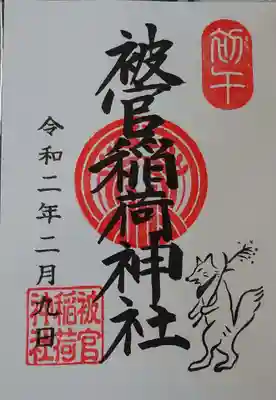 初午
被官稲荷神社
令和二年二月九日
被官
稲荷
神社